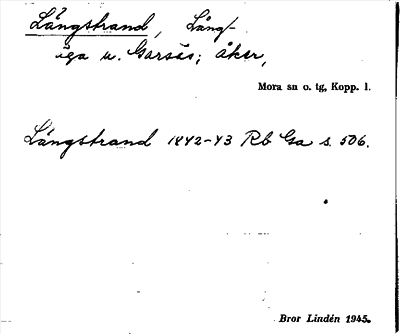 Långstrand, Lång-
äga u. Garsås; åker,
Mora sn o. tg, Kopp. l.
Långstrand 1842-43 Rb Ga s. 506.
Bror Lindén 1945.